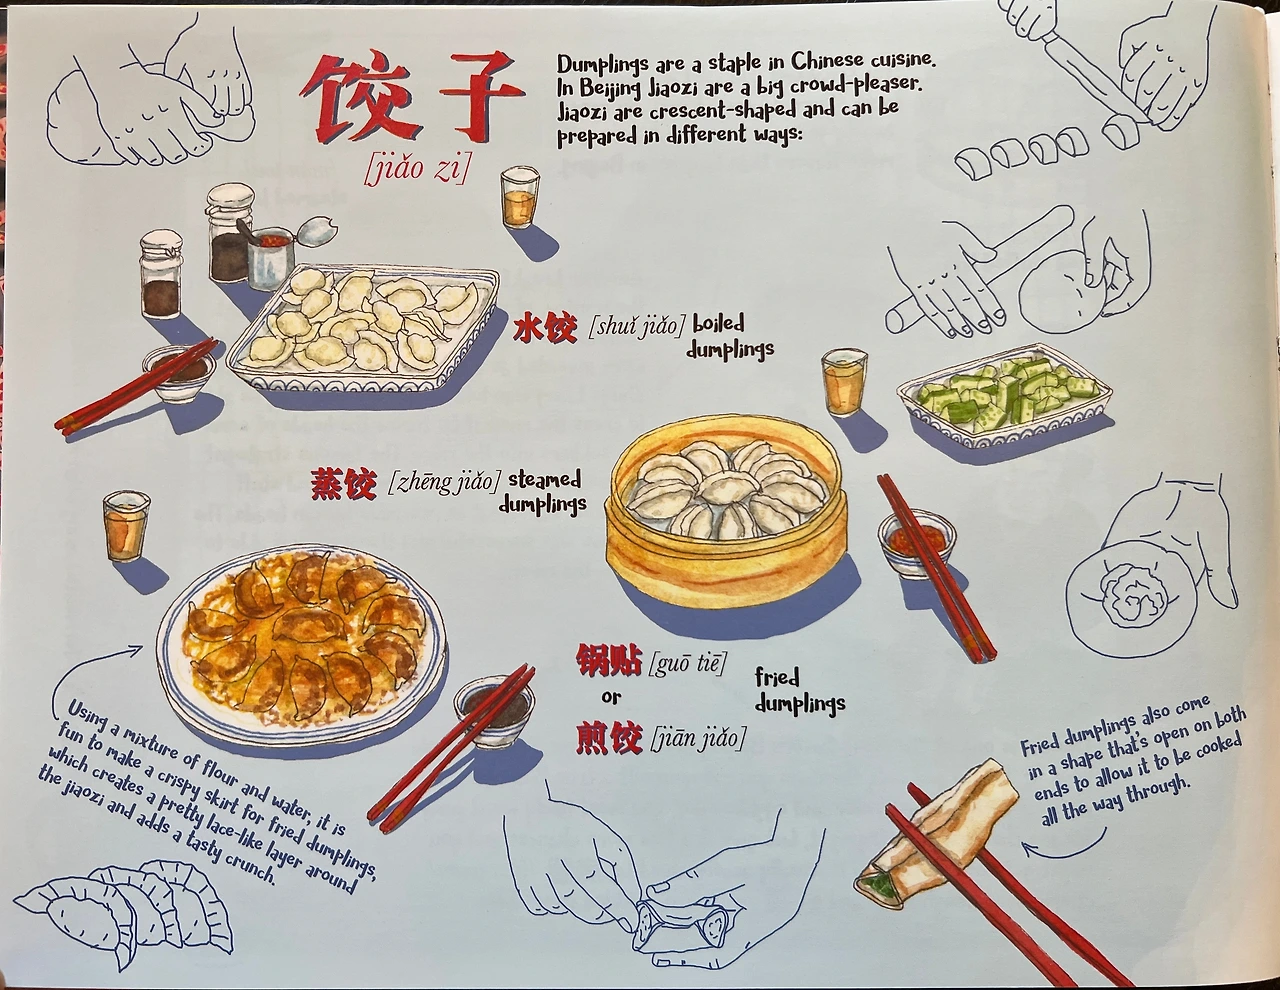 饺子
[jiǎo zi]
Dumplings are a staple in Chinese cuisine.
In Beijing Jiaozi are a big crowd-pleaser.
Jiaozi are crescent-shaped and can be
prepared in different ways:
水饺 [shuǐ jiǎo] boiled
dumplings
蒸饺 [zhēng jiǎo] steamed
dumplings
锅贴 [guō tiē]
or
煎饺 [jiān jiǎo]
fried
dumplings
Using a mixture of flour and water, it is
fun to make a crispy skirt for fried dumplings,
which creates a pretty lace-like layer around
the jiaozi and adds a tasty crunch.
Fried dumplings also come
in a shape that's open on both
ends to allow it to be cooked
all the way through.